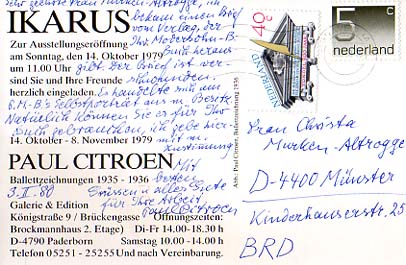 IKARUS
Zur Ausstellungseröffnung
am Sonntag, den 14. Oktober 1979
um 11.00 Uhr
sind Sie und Ihre Freunde
herzlich eingeladen.
14. Oktober - 8. November 1979
PAUL CITROEN
Ballettzeichnungen 1935 - 1936
Galerie & Edition
Königstraße 9 / Brückengasse
Brockmannhaus 2. Etage)
D-4790 Paderborn
Telefon 05251 - 25255
Öffnungszeiten:
Di-Fr 14.00-18.30 h
Samstag 10.00 - 14.00
Und nach Vereinbarung.
bekam einen Brief
vom Verlag, der
gibt. Der Brief ist ver-
Es handelte sich um
Selbstporträt aus m. Besitz
Natürlich können Sie es für Ihr
Buch gebrauchen, ich gebe hier-
mit m.
Zustimmung
Mit
besten
Grüssen u. alles Gute
für Ihre Arbeit
Paul Citroen
3.II.80
Abb.: Paul Citroen: Ballettzeichnung 1936
40c
NEDERLAND
5c
nederland
Frau Christa
Murken-Altrogge
D-4400 Münster
Kinderhauserstr. 25
BRD